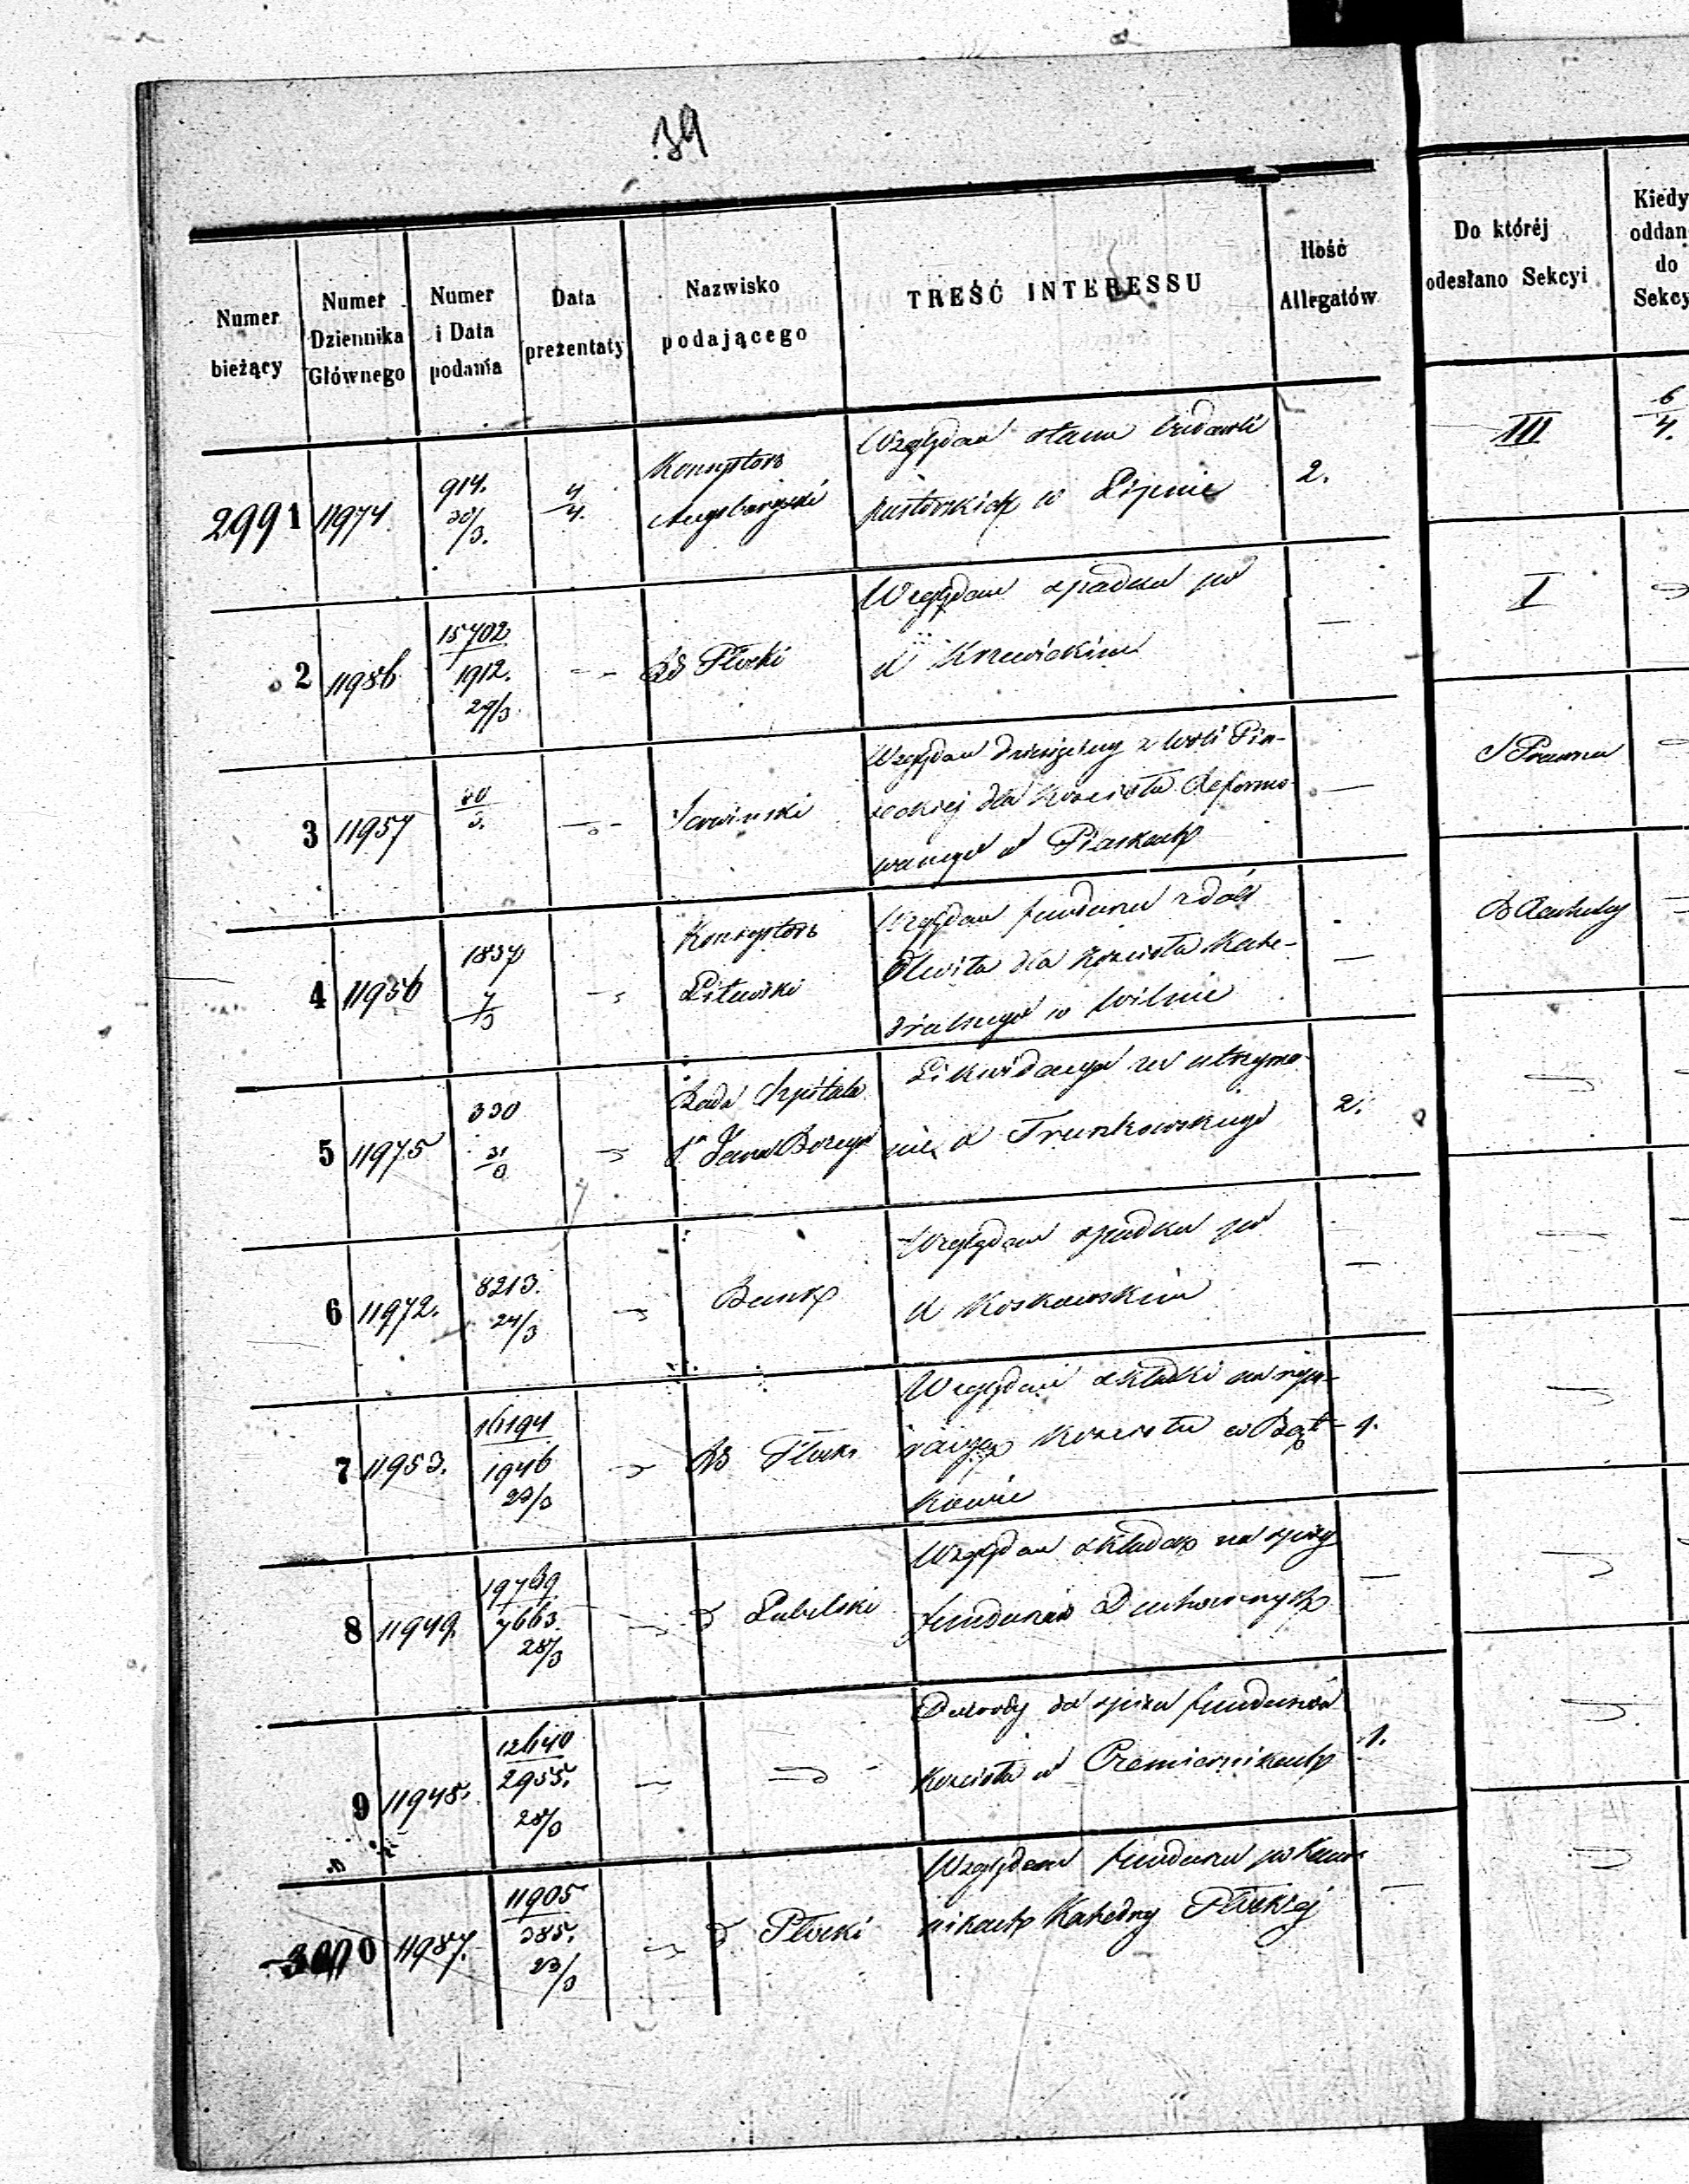 39
Numer bieżący
Numer Dziennika Głównego
Numer i Data podania
Data prezentaty
Nazwisko podającego
TREŚĆ INTERESSU
Ilość Allegatów
Do któréj odesłano Sekcyi
Kiedy oddan do Sekcy
2991 11974 914. 30/3. 4/4. Konsystorz Augsburgski
Względem stanu budowli
pastorskich w Lipnie
2. III 6/4.
2 11986 15702 1912. 29/3. RG Płocki
Względem spadku po
Krzewickim
— I
3 11957 20/3. Jarwinski
Względem dziesięciny z Woli Pia-
seckiej dla Kościoła Reformo-
wanego w Piaskach
— S Prawna
4 11956 1837 7/3 Konsystorz Litewski
Względem funduszu z dóbr
Olwita dla Kościoła Kate-
dralnego w Wilnie
—
5 11975 330 31/3 Rada Szpitala
S. Jana Bożego
Likwidacya za utrzyma-
nie Trunkowskiego
2.
6 11972. 8213. 24/3 Bank
Względem spadku po
Koskowskim
—
7 11953. 16194 1946 29/3 RG Płocki
Względem składki na repe-
racyą Kościoła w Bąt-
kowie
1.
8 11949. 7663. 28/3 Lubelski
Względem składek na spisy
funduszów Duchownych
—
9 11948. 12640 2955. 28/3
Dowody do spisu funduszów
Kościoła w Czemiernikach
1.
3000 11987. 11905 385. 23/3 Płocki
Względem funduszu po Kano-
nikach Katedry Płockiej
—